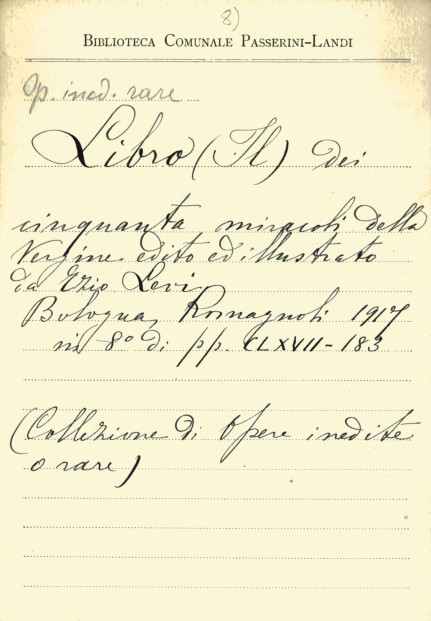 8)
BIBLIOTECA COMUNALE PASSERINI-LANDI
Op. ined. rare
Libro (Il) dei
cinquanta miracoli della
Vergine edito ed illustrato
da Ezio Levi
Bologna, Romagnoli 1917
in 8° di pp. CLXVII-183
(Collezione di Opere inedite
o rare)